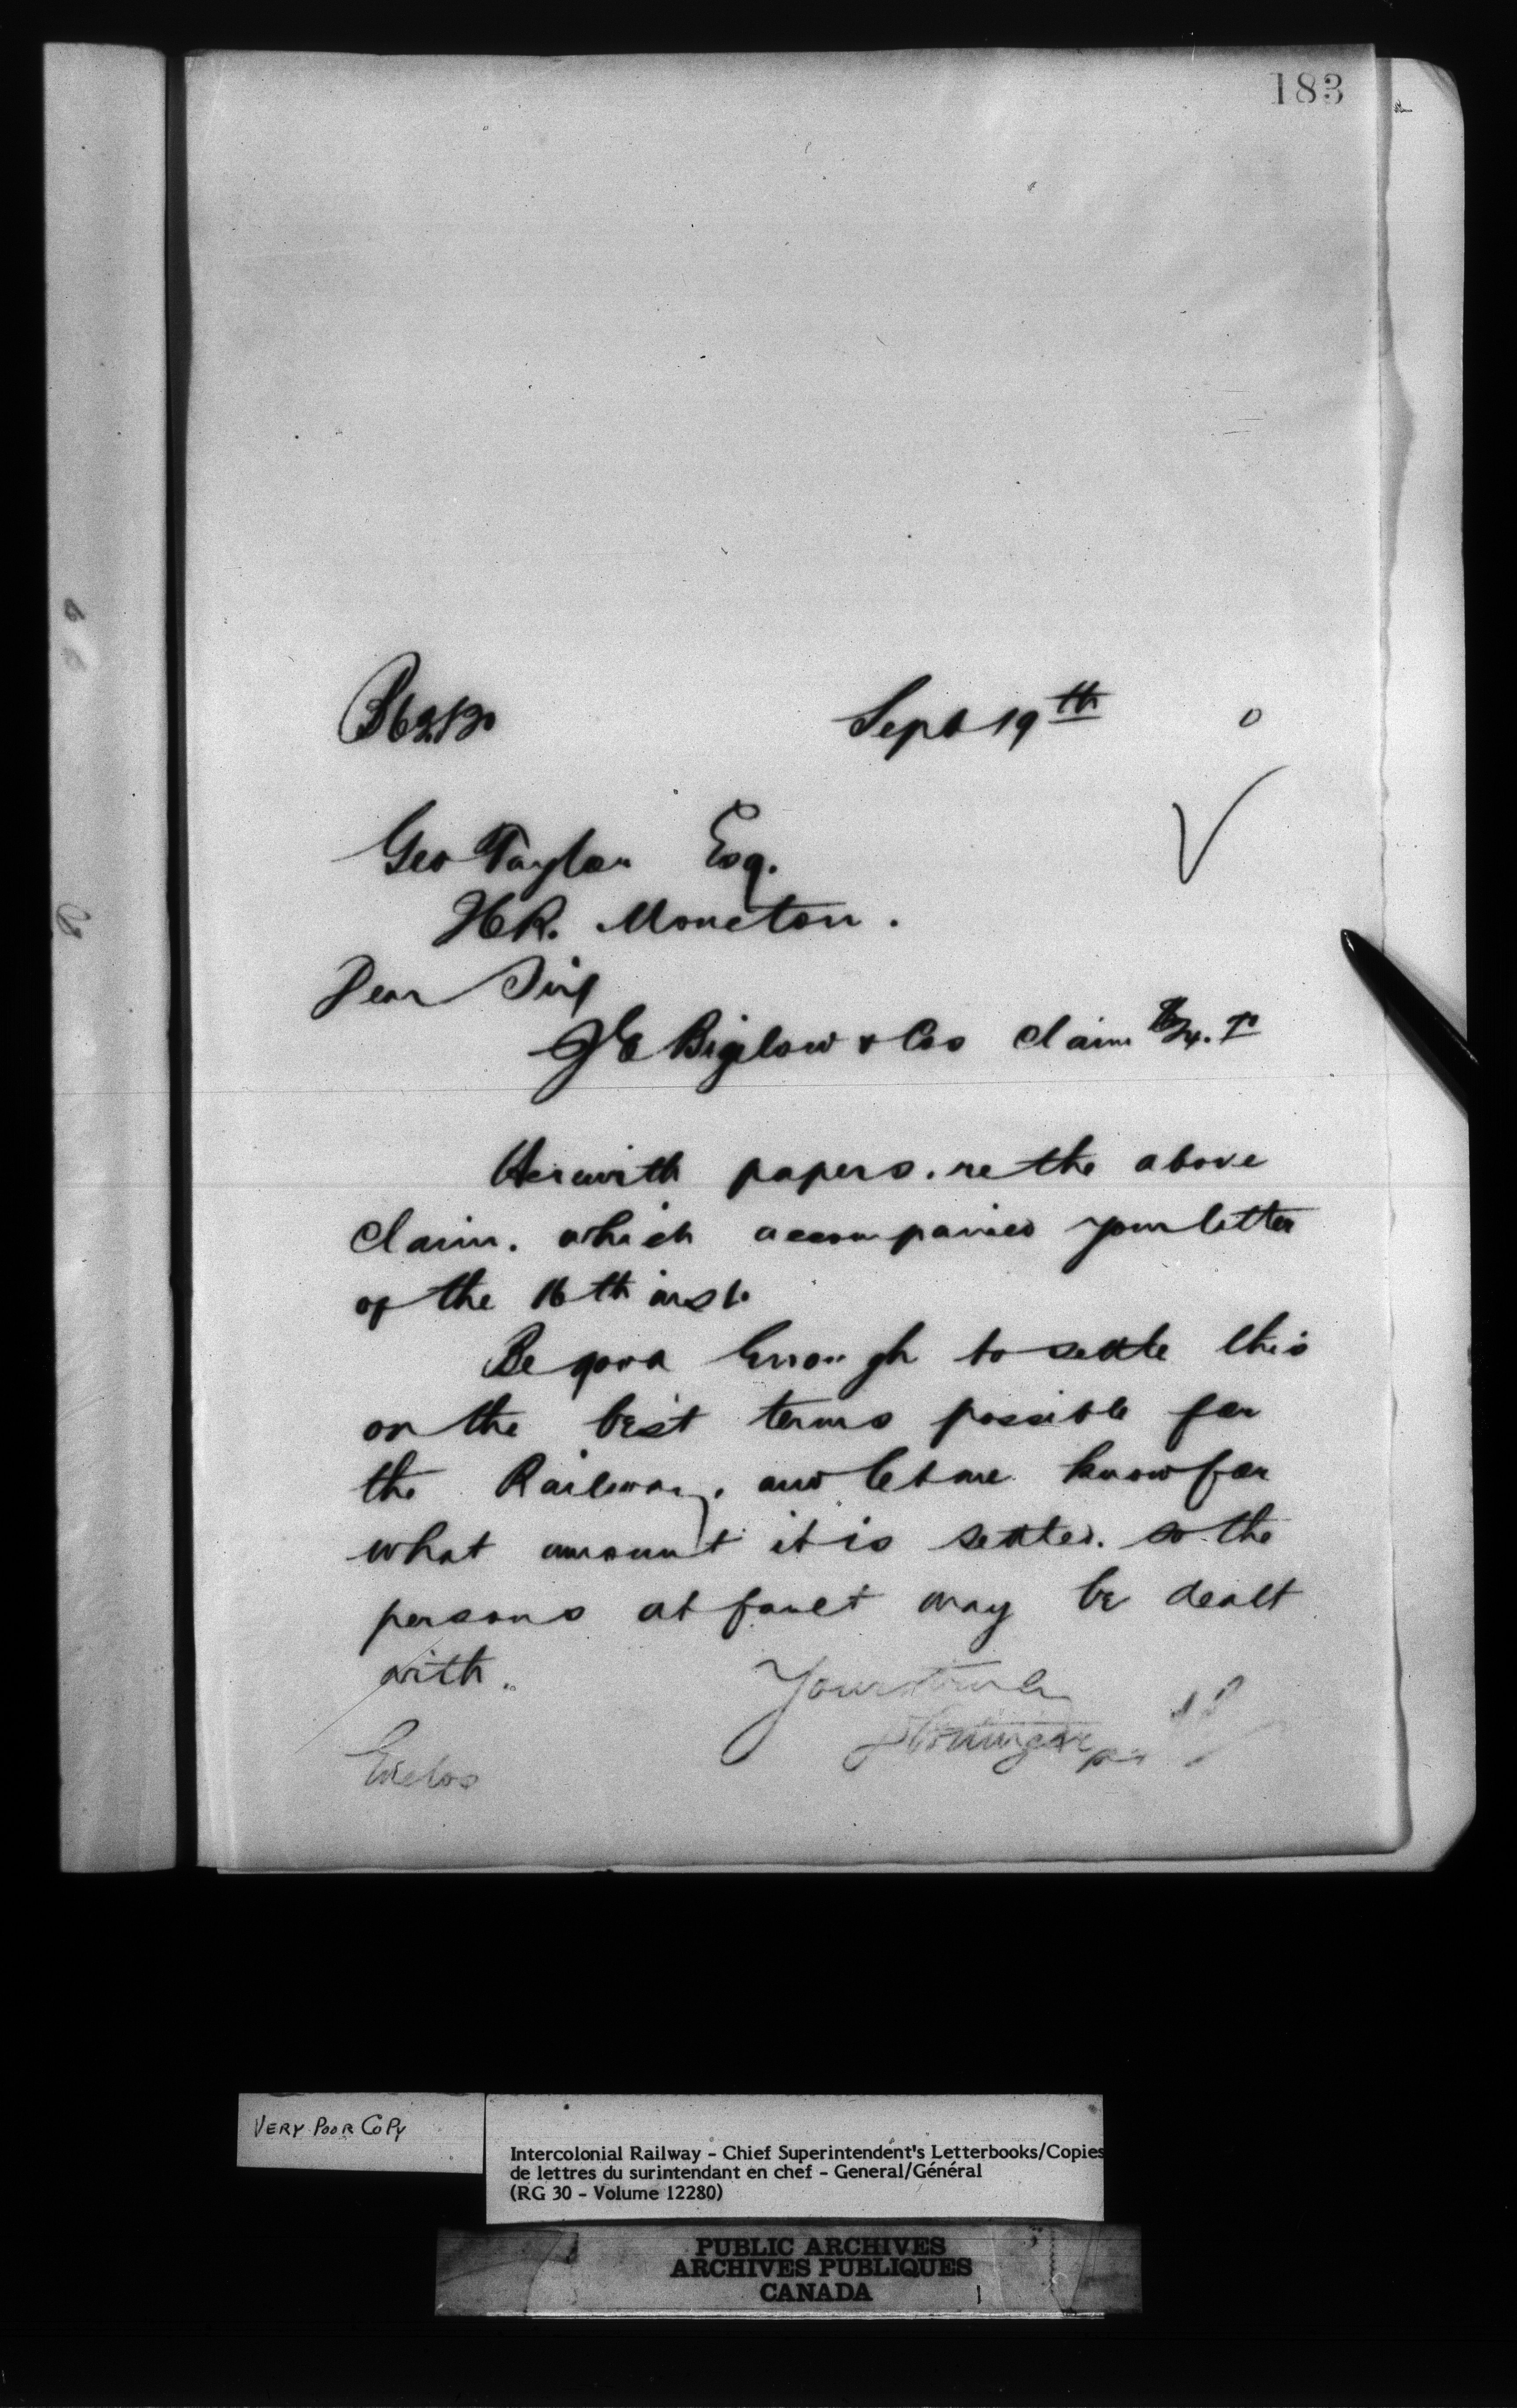 183
Sept 19th 0
Geo Taylor Esq.
Moncton.
Dear Sir
J E Bigelow & Cos Claim
Herewith papers. re the above
claim. which accompanied your letter
of the 16th inst.
Be good Enough to settle this
on the best terms possible for
the Railway, and let me know for
what amount it is settled. so the
persons at fault may be dealt
with.
Yours truly
D Pottinger per
Enclos
VERY POOR COPY
Intercolonial Railway - Chief Superintendent's Letterbooks/Copies
de lettres du surintendant en chef - General/Général
(RG 30 - Volume 12280)
PUBLIC ARCHIVES
ARCHIVES PUBLIQUES
CANADA